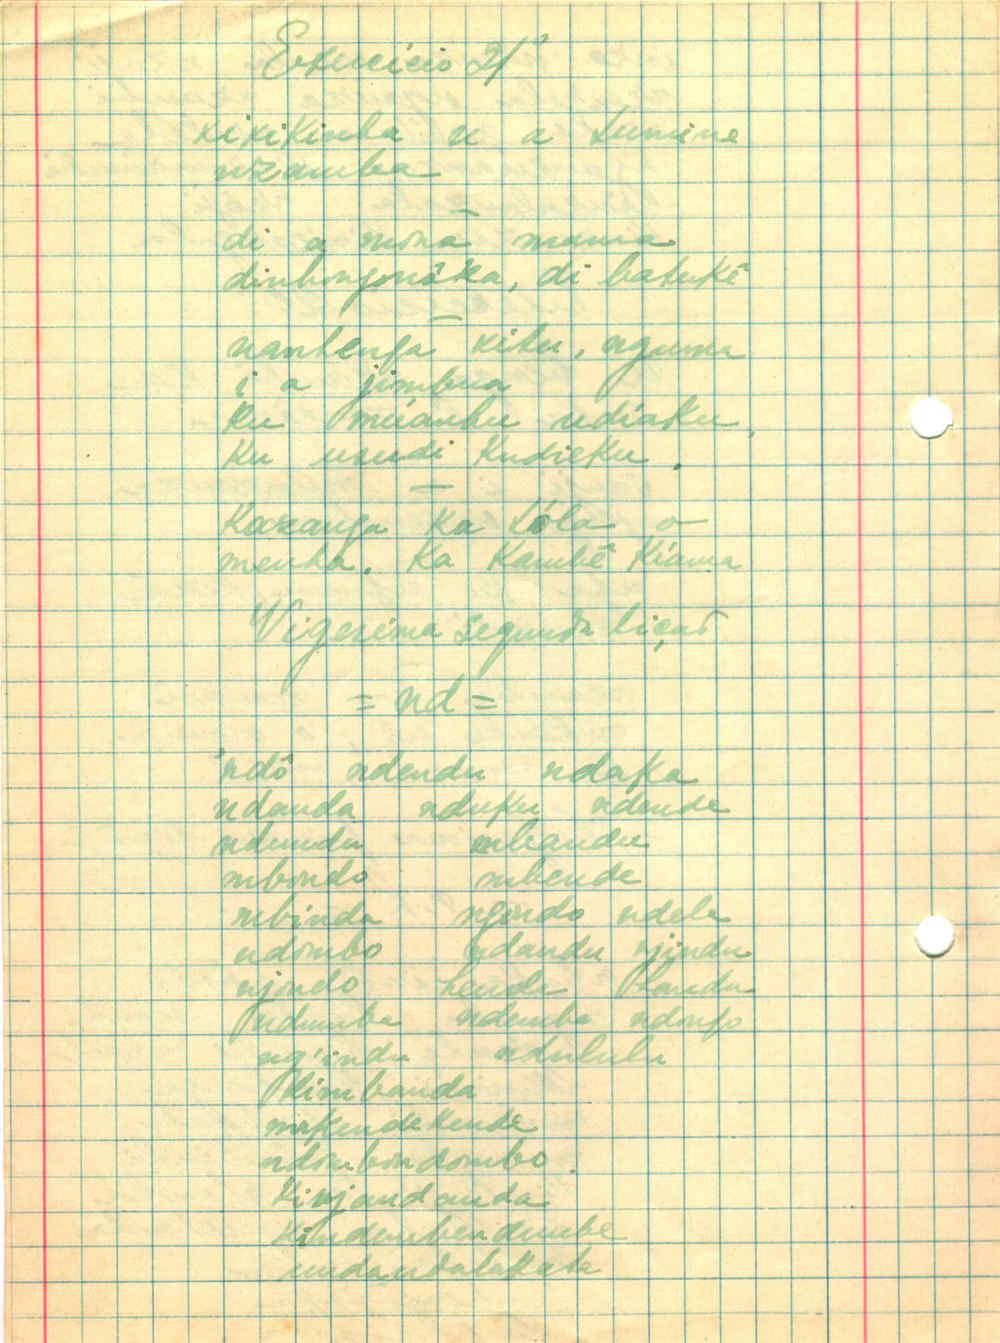 Exercício 21º
xixikinha u a tumine
nzamba
di a moná mama
dinhongonóka, di batukê
nantenga xitu, nguma
i a jimbua
ku múanhu udiaku,
ku usudi kudieku.
Kazanga ka tóla o
menha. Ka kambê kiama
Vigesima segunda liçaõ
= nd =
ndô ndendu ndaka
ndanda nduku ndende
ndundu mbandu
mbondo mbende
mbinda ngondo ndele
ndombo ndandu njindu
njondo hende
ndumba ndemba ndongo
ng'indu ndulula
kimbanda
makendekende
ndombondombo.
kinjandanda
kindumbendumbe